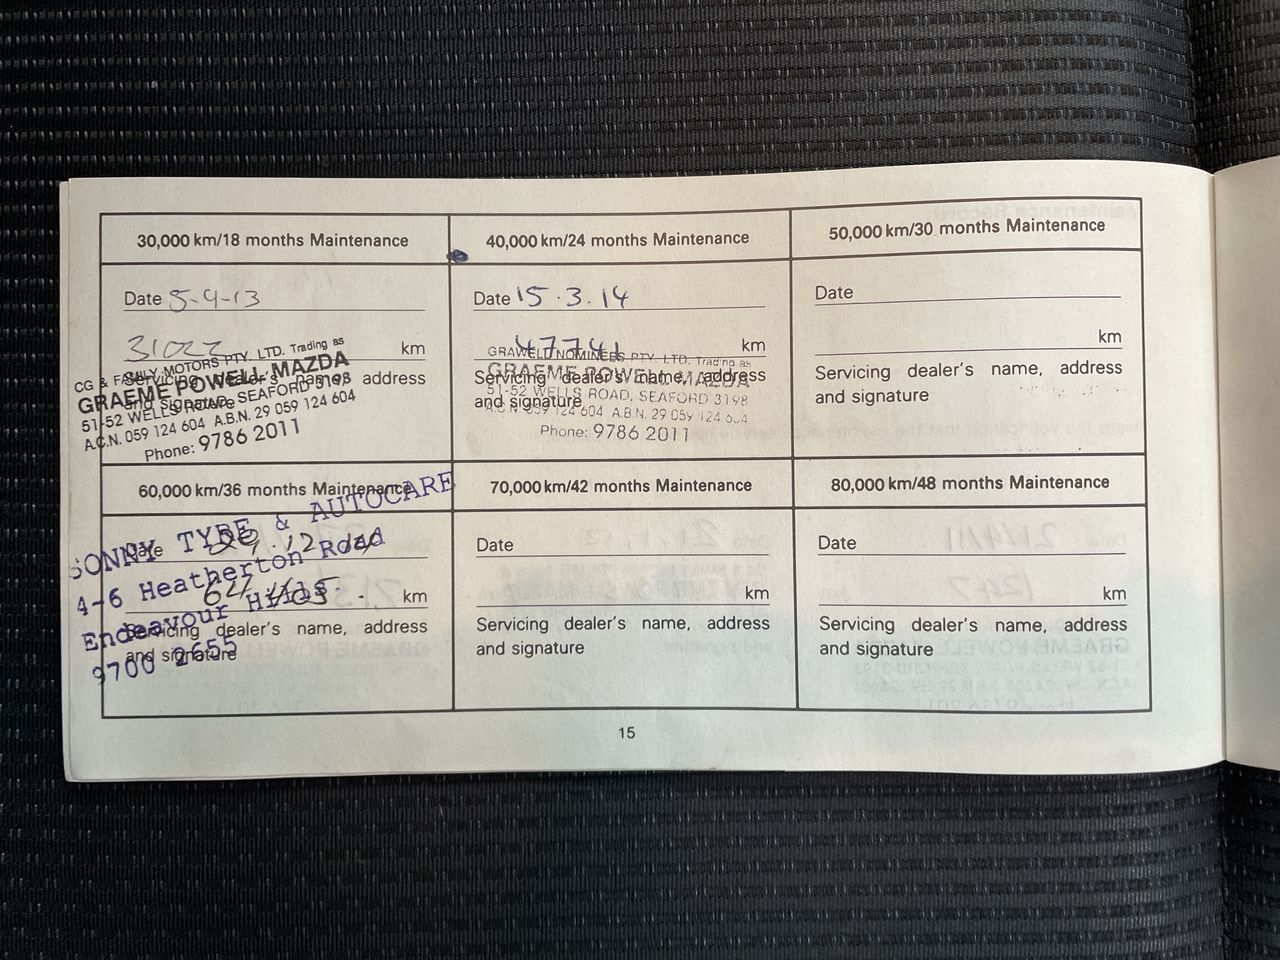 30,000 km/18 months Maintenance
Date 5-9-13
31022 km
Servicing dealer's name, address
and signature
CG & FAMILY MOTORS PTY. LTD. Trading as
GRAEME POWELL MAZDA
51-52 WELLS ROAD, SEAFORD 3198
A.C.N. 059 124 604 A.B.N. 29 059 124 604
Phone: 9786 2011
40,000 km/24 months Maintenance
Date 15.3.14
47741 km
Servicing dealer's name, address
and signature
GRAWELL NOMINEES PTY. LTD. Trading as
GRAEME POWELL MAZDA
51-52 WELLS ROAD, SEAFORD 3198
A.C.N. 059 124 604 A.B.N. 29 059 124 604
Phone: 9786 2011
50,000 km/30 months Maintenance
Date
km
Servicing dealer's name, address
and signature
60,000 km/36 months Maintenance
Date
km
Servicing dealer's name, address
and signature
SONNY TYRE & AUTOCARE
4-6 Heatherton Road
Endeavour Hills.
9700 2655
70,000 km/42 months Maintenance
Date
km
Servicing dealer's name, address
and signature
80,000 km/48 months Maintenance
Date
km
Servicing dealer's name, address
and signature
15